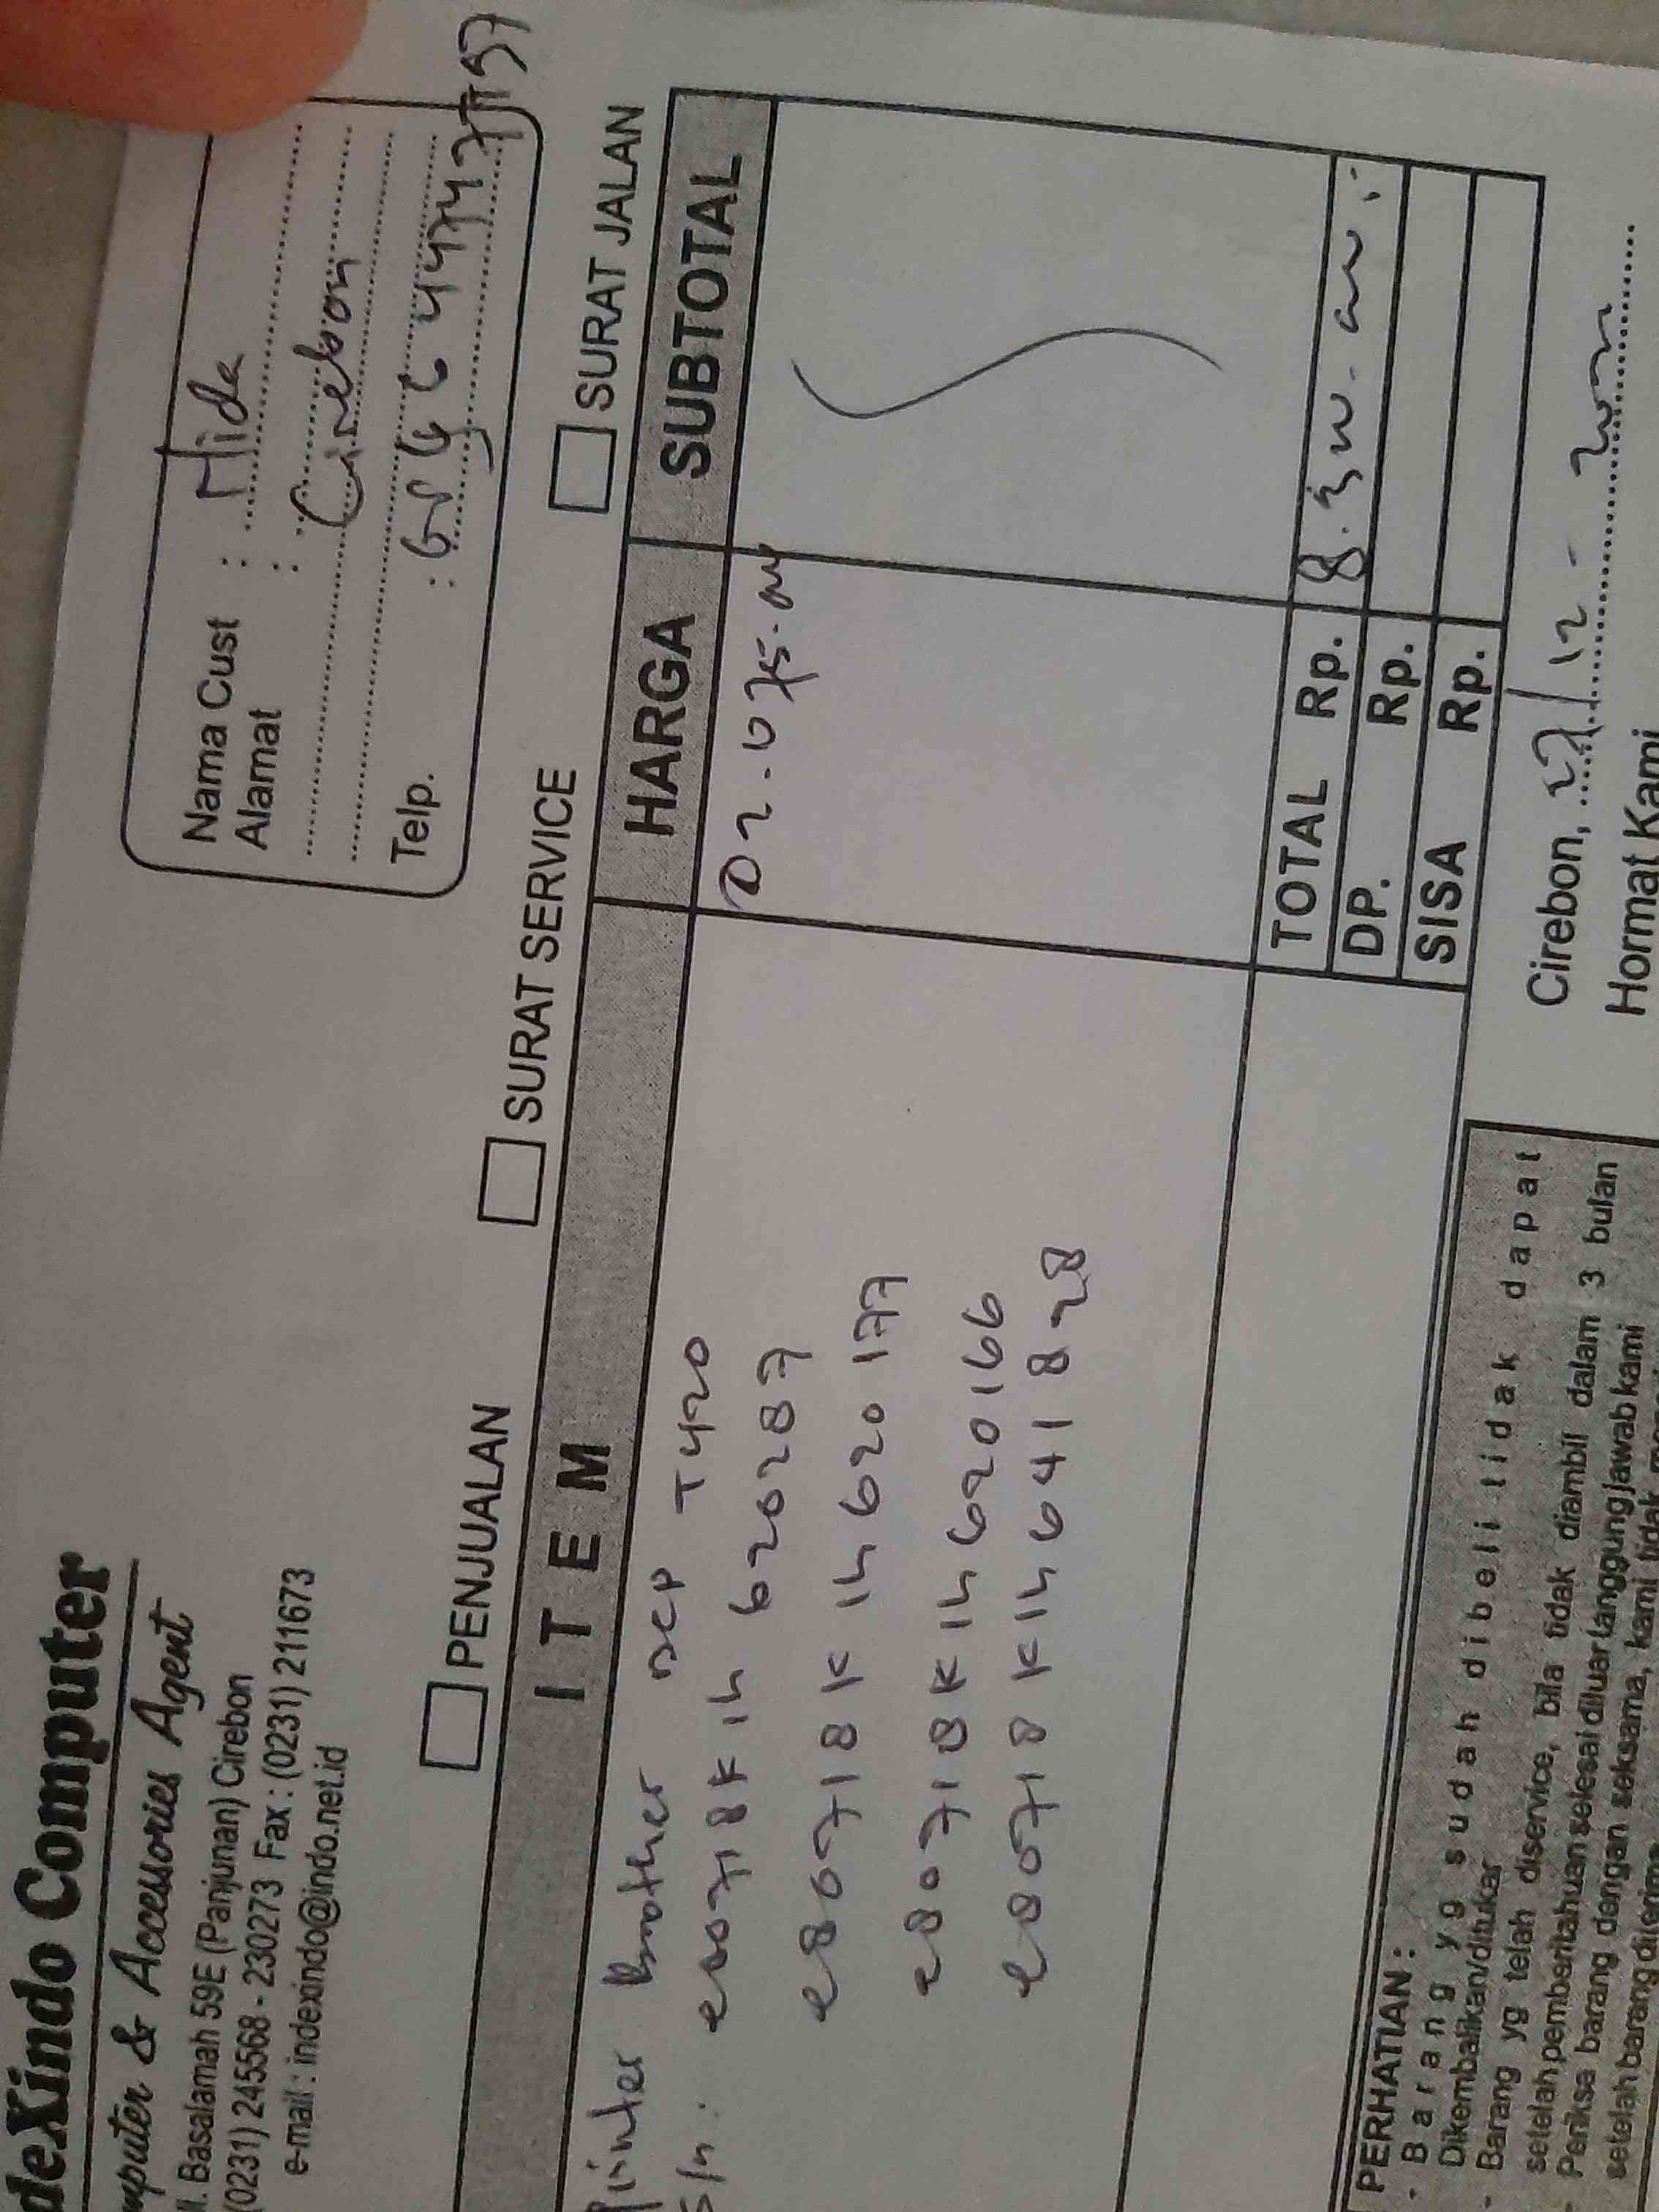 deXindo Computer
mputer & Accessories Agent
Jl. Basalamah 59E (Panjunan) Cirebon
(0231) 245568 - 230273 Fax : (0231) 211673
e-mail : indexindo@indo.net.id
Nama Cust : Mida
Alamat :
Cirebon
Telp. :
PENJUALAN SURAT SERVICE SURAT JALAN
ITEM HARGA SUBTOTAL
Printer Brother DCP T420 @ 2.075.000
S/n : E80718K1H620287
E80718K1H620177
E80718K1H620166
E80718K1H641828
TOTAL Rp. 8.300.000,-
DP. Rp.
SISA Rp.
PERHATIAN :
- Barang yg sudah dibeli tidak dapat
Dikembalikan/ditukar
- Barang yg telah diservice, bila tidak diambil dalam 3 bulan
setelah pemberitahuan selesai diluar tanggung jawab kami
- Periksa barang dengan seksama, kami tidak
setelah barang diterima
Cirebon,
Hormat Kami